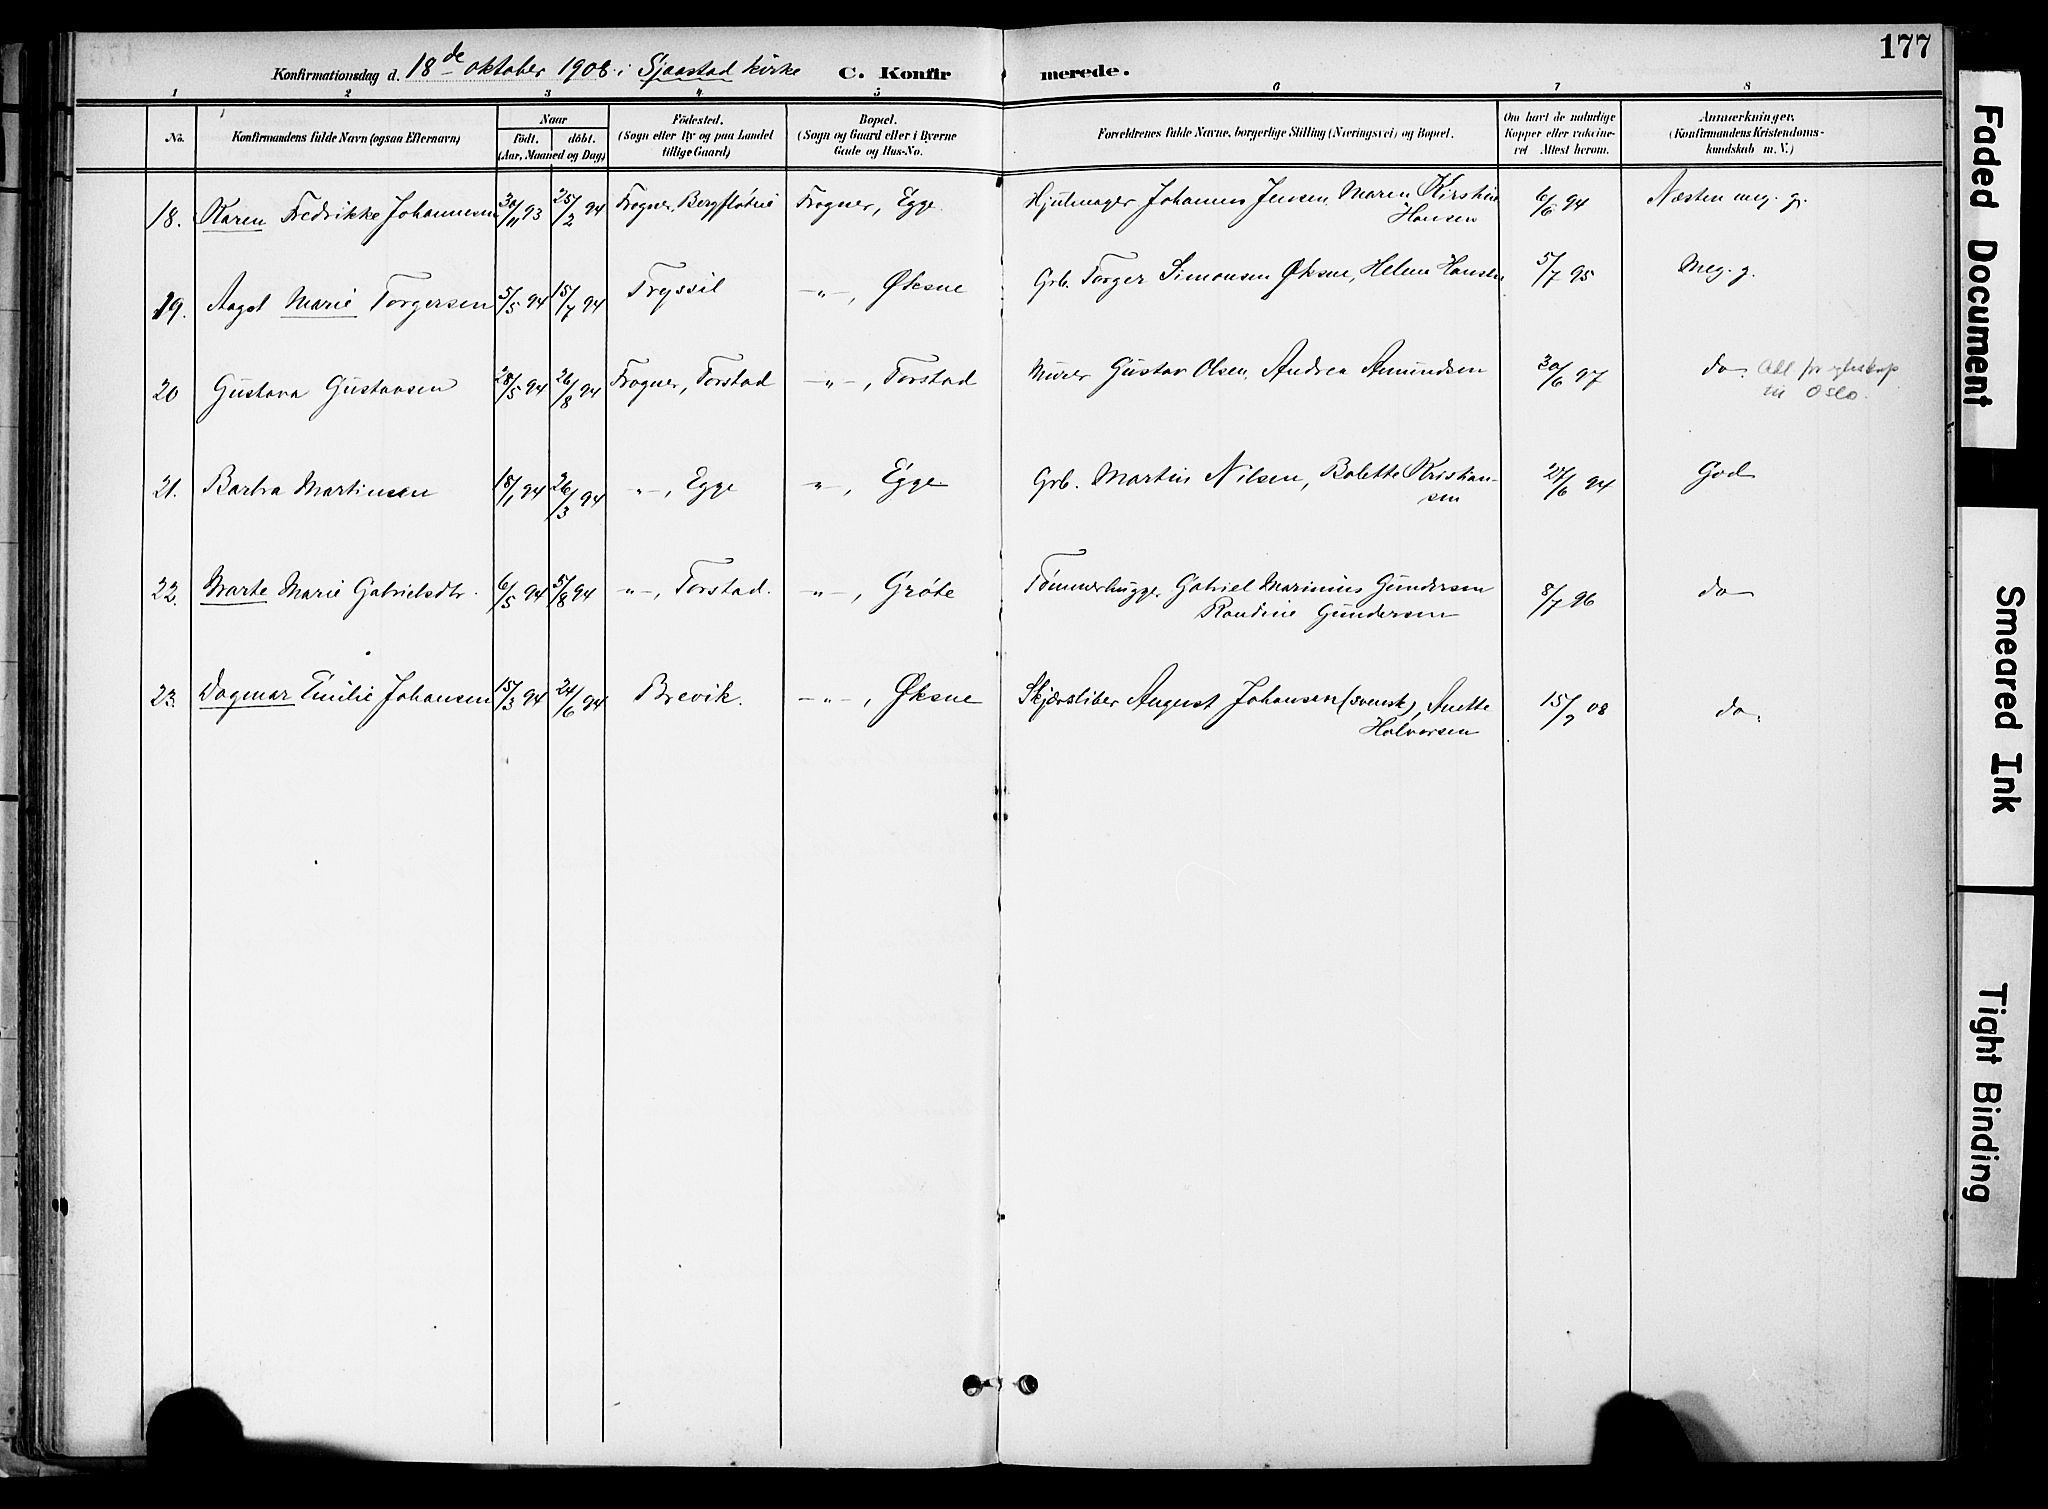 177
Konfirmationsdag d. 18de oktober 1908 i Sjaastad kirke C. Konfirmerede.
1 2 3 4 5 6 7 8
No. Konfirmandens fulde Navn (ogsaa Efternavn) Naar Födt. döbt. (Aar, Maaned og Dag) Födested. (Sogn eller By og paa Landet tillige Gaard) Bopæl. (Sogn og Gaard eller i Byerne Gade og Hus-No. Forældrenes fulde Navne, borgerlige Stilling (Næringsvei) og Bopæl. Om havt de naturlige Kopper eller vaccineret Attest herom. Anmærkninger. (Konfirmandens Kristendomskundskab m. V.)
18. Karen Fredrikke Johannesen 30/11 93 25/2 94 Frogner, Bergfløtrie Frogner, Egge Hjulmager Johannes Jensen, Maren Kirstine Hansen 6/6 94 Næsten meg. g.
19. Aagot Marie Torgersen 5/5 94 15/7 94 Tryssil -"-, Øksne Grb. Torger Simonsen Øksne, Helene Hansen 5/7 95 Meg. g.
20 Gustava Gustavsen 28/5 94 26/8 94 Frogner, Torstad -"-, Torstad Murer Gustav Olsen, Andrea Amundsen 30/6 97 do.
til Oslo.
21. Barbra Martinsen 18/1 94 26/3 94 -"-, Egge -"-, Egge Grb. Martin Nilsen, Bolette Kristiansen 24/6 94 God
22. Marte Marie Gabrielsdtr. 6/5 94 5/8 94 -"-, Torstad. -"-, Grøte Tømmerhugger Gabriel Marinius Gundersen
Randine Gundersen 8/7 96 do
23. Dagmar Emilie Johansen 15/3 94 24/6 94 Brevik. -"-, Øksne Skjærsliber August Johansen (svensk), Anette
Halvorsen 15/7 08 do.
Faded Document
Smeared Ink
Tight Binding